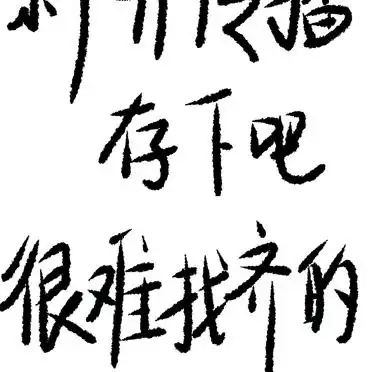 存下吧
很难找齐的